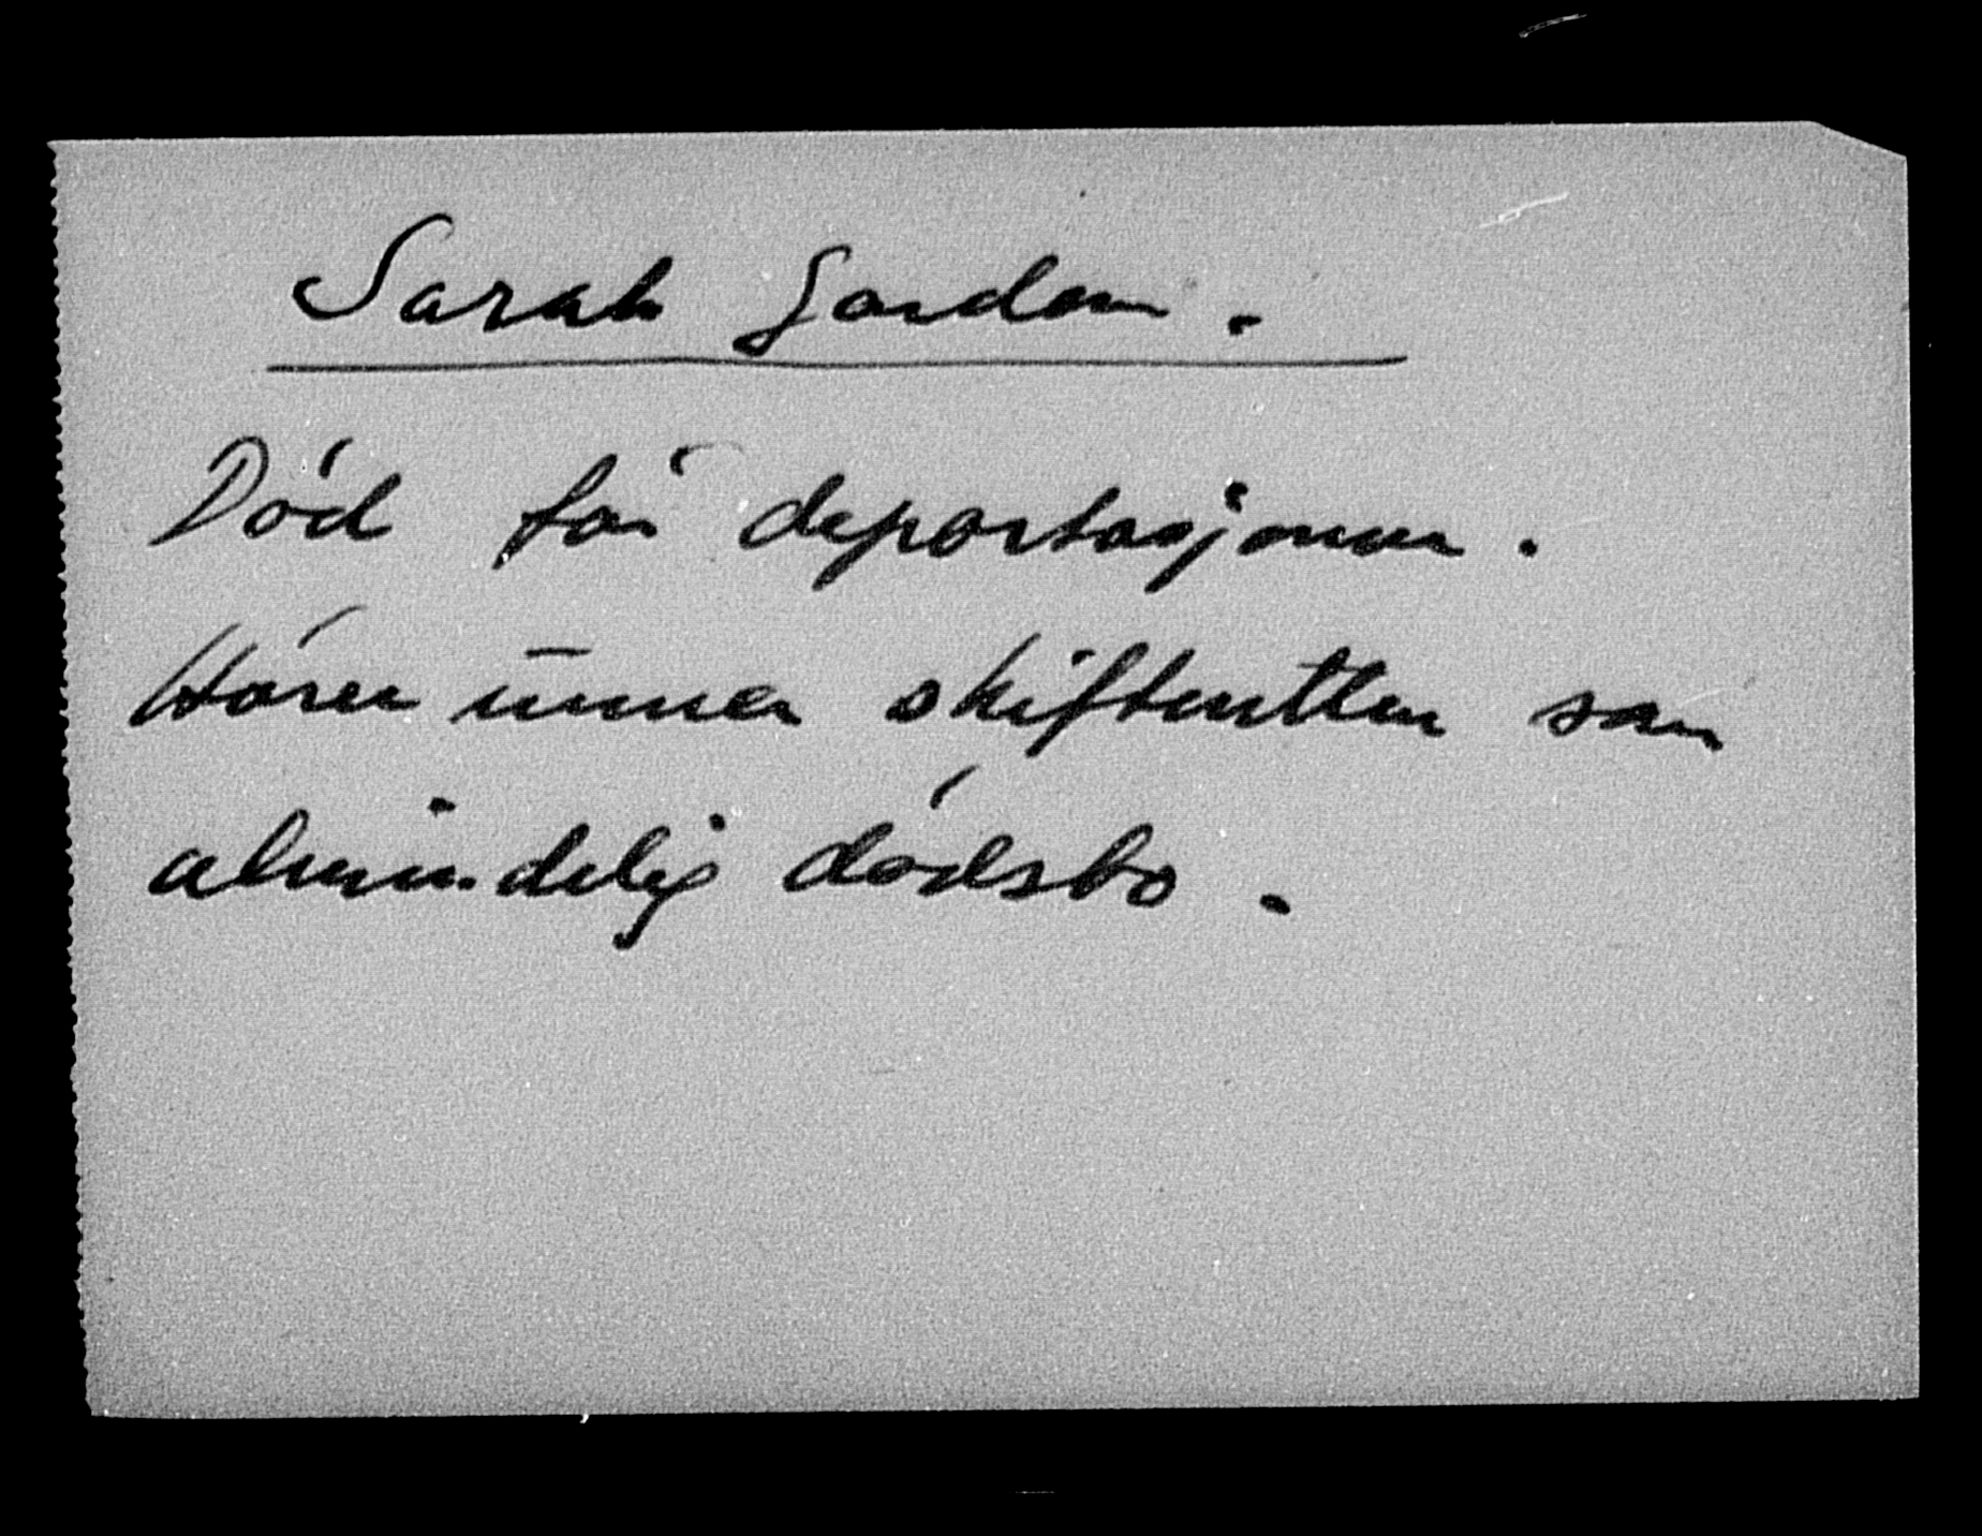 Sarah Gordon.
Død før deportasjonen.
Hører unner skifteretten som
almindelig dødsbo.